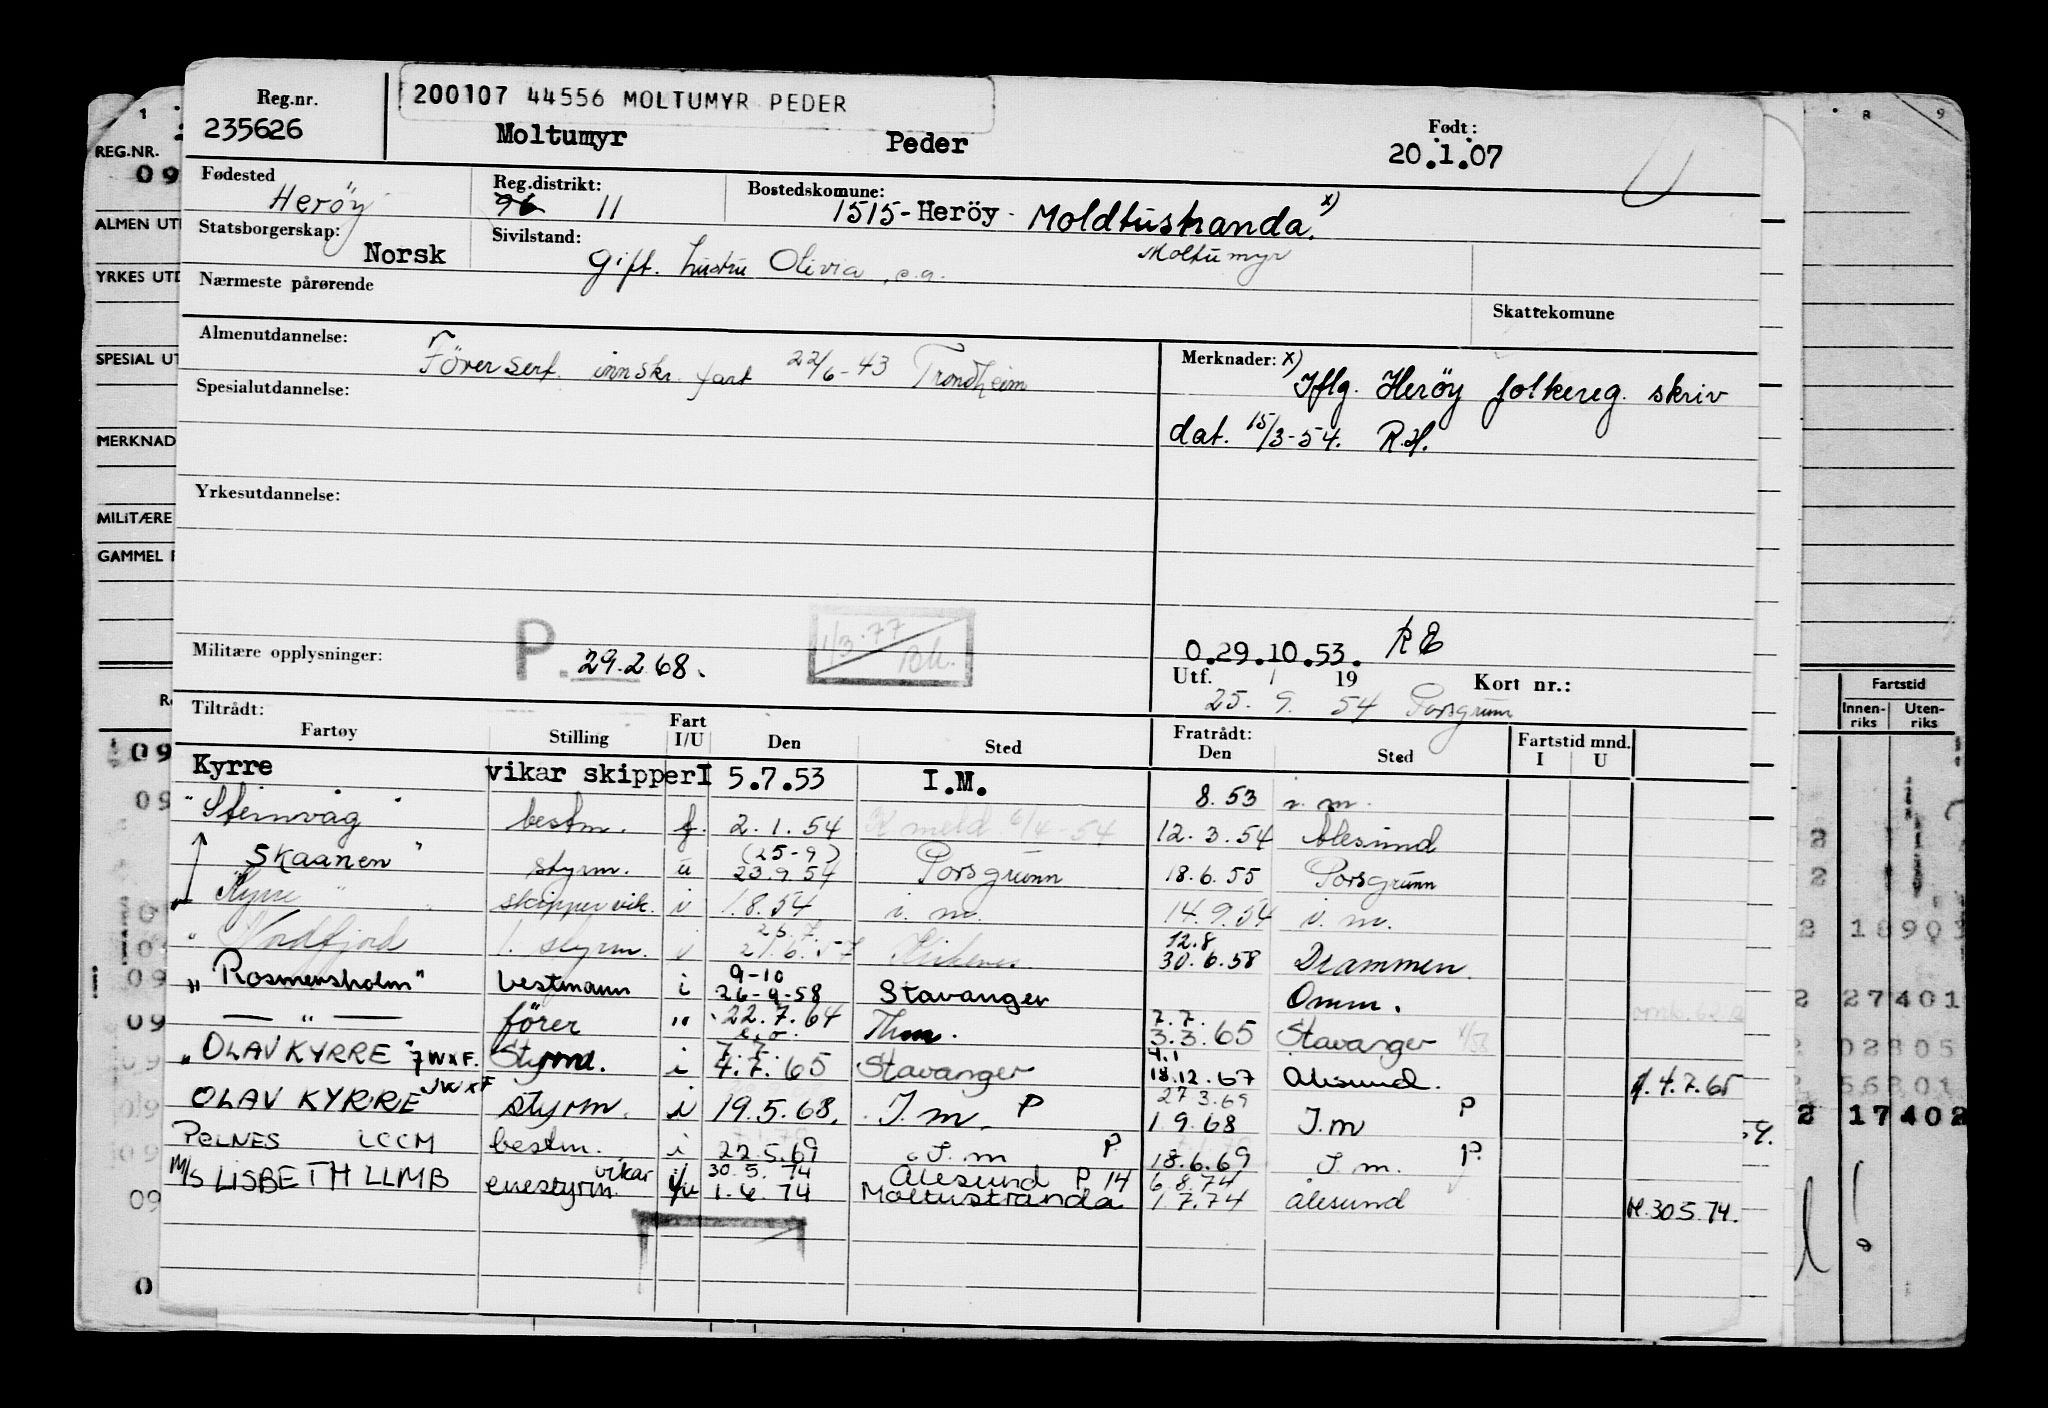 Reg.nr.
235626
200107 44556 MOLTUMYR PEDER
Moltumyr Peder
Født:
20.1.07
Fødested
Heröy
Reg.distrikt:
96 11
Bostedskomune:
1515-Heröy - Moldtustranda. x)
Statsborgerskap:
Norsk
Sivilstand:
Gift. hustru Olivia, s.a.
Moltumyr
Nærmeste pårørende
Skattekomune
Almenutdannelse:
Förersert. innskr. fart 22/6-43 Trondheim
Spesialutdannelse:
Merknader: x)
Iflg. Heröy folkereg. skriv
dat. 15/3-54. R.H.
Yrkesutdannelse:
Militære opplysninger:
P. 29.2.68.
1/3.77
O.29.10.53. RE
Utf. / 19 Kort nr.:
25. 9. 54 Porsgrunn
Tiltrådt:
Fartøy Stilling Fart I/U Den Sted Fratrådt: Den Sted Fartstid mnd. I U
Kyrre vikar skipper I 5.7.53 I.M. 8.53 i.m.
"Steinvåg" bestm. f. 2.1.54 meld 6/4-54 12.3.54 Ålesund
"Skaanen" styrm. u (25-9) 23.9.54 Porsgrunn 18.6.55 Porsgrunn
"Kyrre" skipper vik. i 1.8.54 i.m. 14.9.54 i.m.
"Nordfjord 1. styrm. i 26.7. 21.6.57 12.8 30.6.58 Drammen.
"Rosmersholm" bestmann i 9-10 26-9-58 Stavanger Omm.
— " — förer " 22.7.64 Thm. 7.7. 3.3.65 Stavanger
"OLAV KYRRE" JWXF. Styrm. i 7.7. 4.7.65 Stavanger 4.1 18.12.67 Ålesund. 4.7.65
OLAV KYRRE JWXF styrm. i 19.5.68. I.m. P 27 3.69 1 9.68 I.m P
POLNES LCCM bestm. i 22.5.69 I.m P 18.6.69 I.m. P.
M/S LISBETH LLMB enestyrm. vikar i/u 30.5.74 1.6.74 Ålesund P 14 Moltustranda 6.8.74 1.7.74 Ålesund M.30.5.74.
REG.NR.
09
ALMEN UT
YRKES UTD
SPESIAL UT
MERKNAD
MILITÆRE
GAMMEL
8 9
Fartstid
Innenriks Utenriks
2 18901
2 27401
2 02805
56801
2 17402